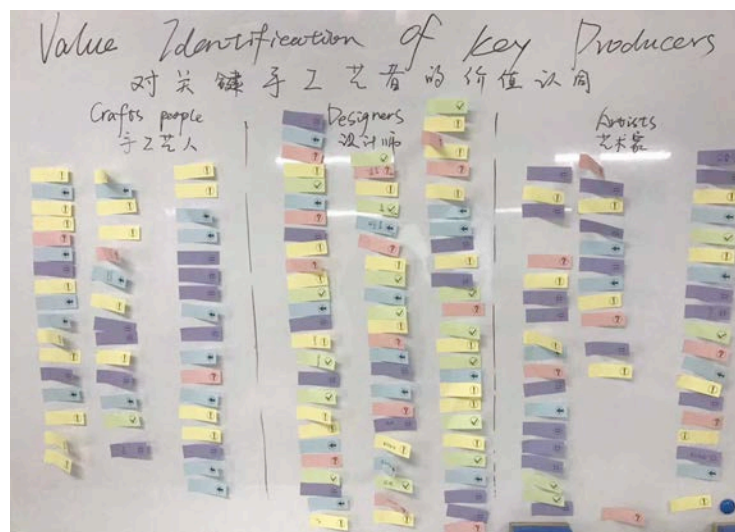 Value Identification of key Producers
对关键手工艺者的价值认同
Crafts people
手工艺人
Designers
设计师
Artists
艺术家